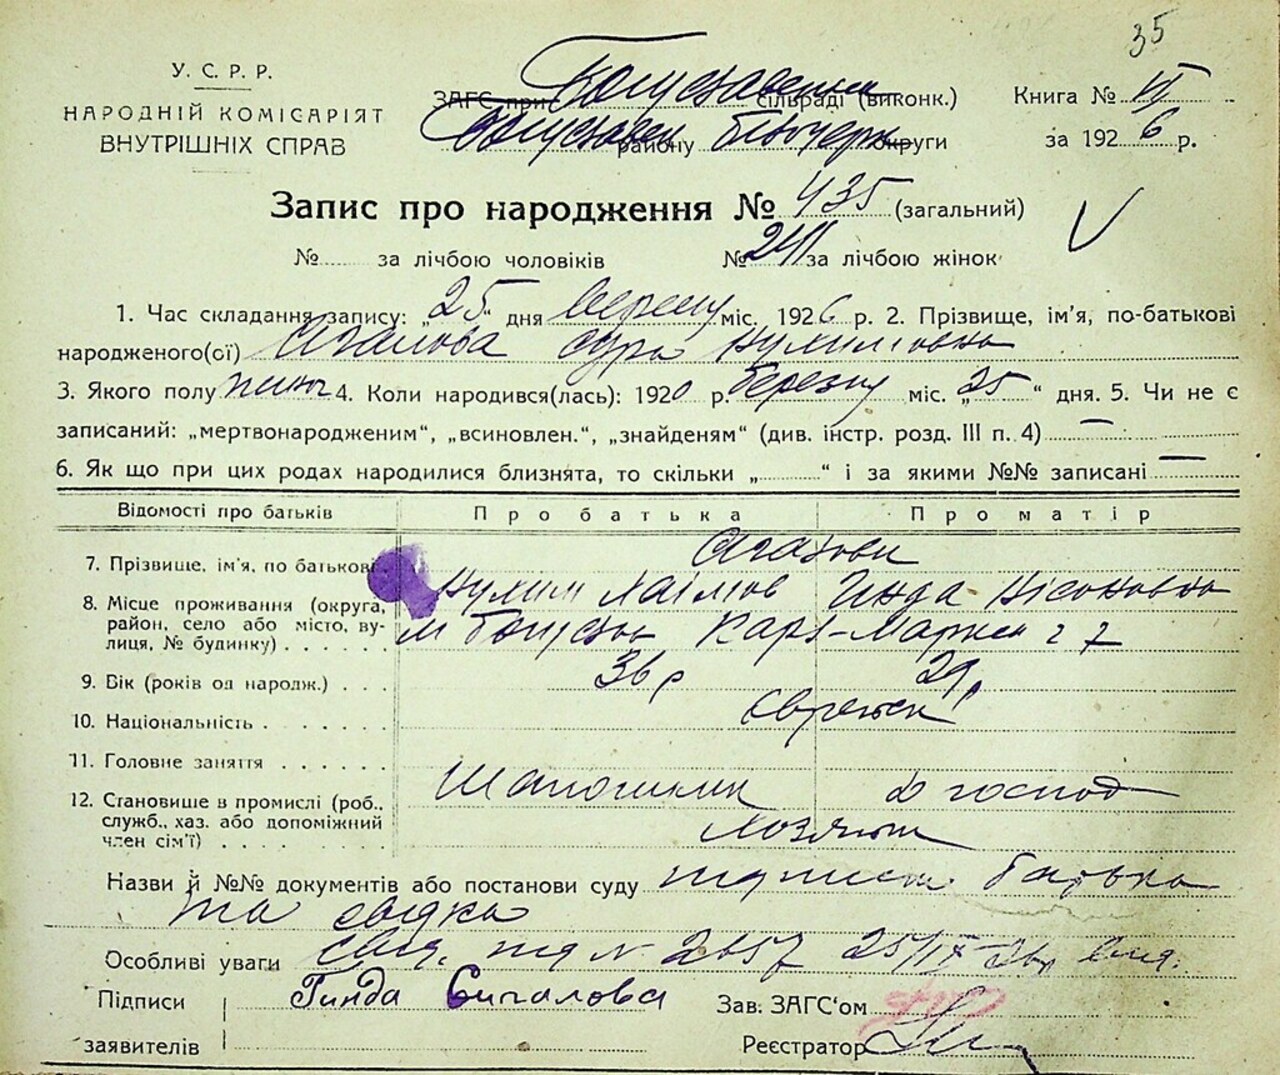 35
У. С. Р. Р.
НАРОДНІЙ КОМІСАРІЯТ
ВНУТРІШНІХ СПРАВ
ЗАГС при сільраді (виконк.)
району округи
Книга № VI
за 1926 р.
Запис про народження № 435 (загальний)
№ за лічбою чоловіків № 211 за лічбою жінок
1. Час складання запису: „25“ дня вересня міс. 1926 р. 2. Прізвище, ім'я, по-батькові
народженого(ої) Сигалова Сура Нухимовна
3. Якого полу жіноч 4. Коли народився(лась): 1920 р. березня міс. „25“ дня. 5. Чи не є
записаний: „мертвонародженим“, „всиновлен.“, „знайденям“ (див. інстр. розд. III п. 4) —
6. Як що при цих родах народилися близнята, то скільки „ “ і за якими №№ записані —
Відомості про батьків Про батька Про матір
Сигалови
7. Прізвище, ім'я, по батькові Нухим Хаімов Гинда Нісоновна
8. Місце проживання (округа, район, село або місто, вулиця, № будинку) м Богуслав Карл-Маркса 7
9. Вік (років од народж.) 36 р 29 р
10. Національність Єврейськ
11. Головне заняття Шапошник д господ
12. Становище в промислі (роб., служб., хаз. або допоміжний член сім'ї)
Назви й №№ документів або постанови суду підписи батька
та свідка
Особливі уваги свид. № 2857 25/IX-26р
Підписи Гинда Сигалова Зав. ЗАГС'ом
заявителів Реєстратор